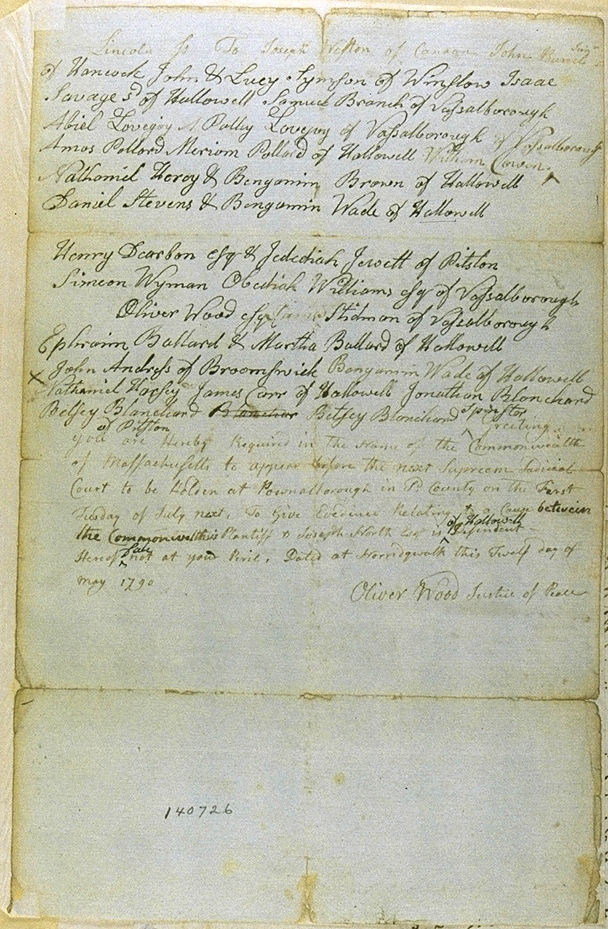 Lincoln Ss To Joseph Weston of Canaan John
of Hancock John & Lucy Symson of Winslow Isaac
Savage 2d of Hallowell Samuel Branch of Vassalborough
Abiel Lovejoy Polley Lovejoy of Vassalborough of Vassalborough
Amos Pollard Meriom Pollard of Hallowell William Cowen
Nathaniel Heroy & Bengamin Brown of Hallowell
Daniel Stevens & Bengamin Wade of Hallowell
Henry Dearbon esq & Jedediah Jewett of Pitston
Simeon Wyman Obediah Williams esq of Vassalborough
Oliver Wood esq Stidman of Vassalborough
Ephraim Ballard & Martha Ballard of Hallowell
x John Andress of Broomswick Bengamin Wade of Hallowell
Nathaniel James Carr of Hallowell Jonathan Blanchard
Betsey Blanchard Betsey Blanchard spinster
of Pitston Greeting
you are Hereby Required in the Name of the Commonwealth
of Massachusetts to appear before the next Supreme Judicial
Court to be Holden at Pownalborough in sd County on the First
Tusday of July next, To Give Evedence Relating to a Cause between
of Hallowell
the Commonwealth is Plantiff & Joseph North Esq is Defendent
Hereof Fale not at your Peril, Dated at Norridgwalk this Twelf day of
May 1790
Oliver Wood Justice of Peace
140726